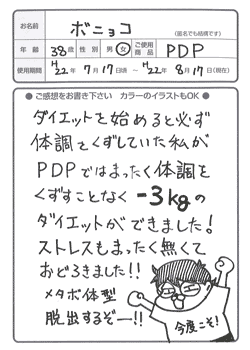 お名前 ボニョコ (匿名でも結構です)
年齢 38歳 性別 男 女 ご使用商品 PDP
使用期間 H22年7月17日頃 ～ H22年8月17日(現在)
●ご感想をお書き下さい カラーのイラストもOK●
ダイエットを始めると必ず
体調をくずしていた私が
PDPではまったく体調を
くずすことなく -3kgの
ダイエットができました!
ストレスもまったく無くて
おどろきました!!
メタボ体型
脱出するぞー!!
今度こそ!